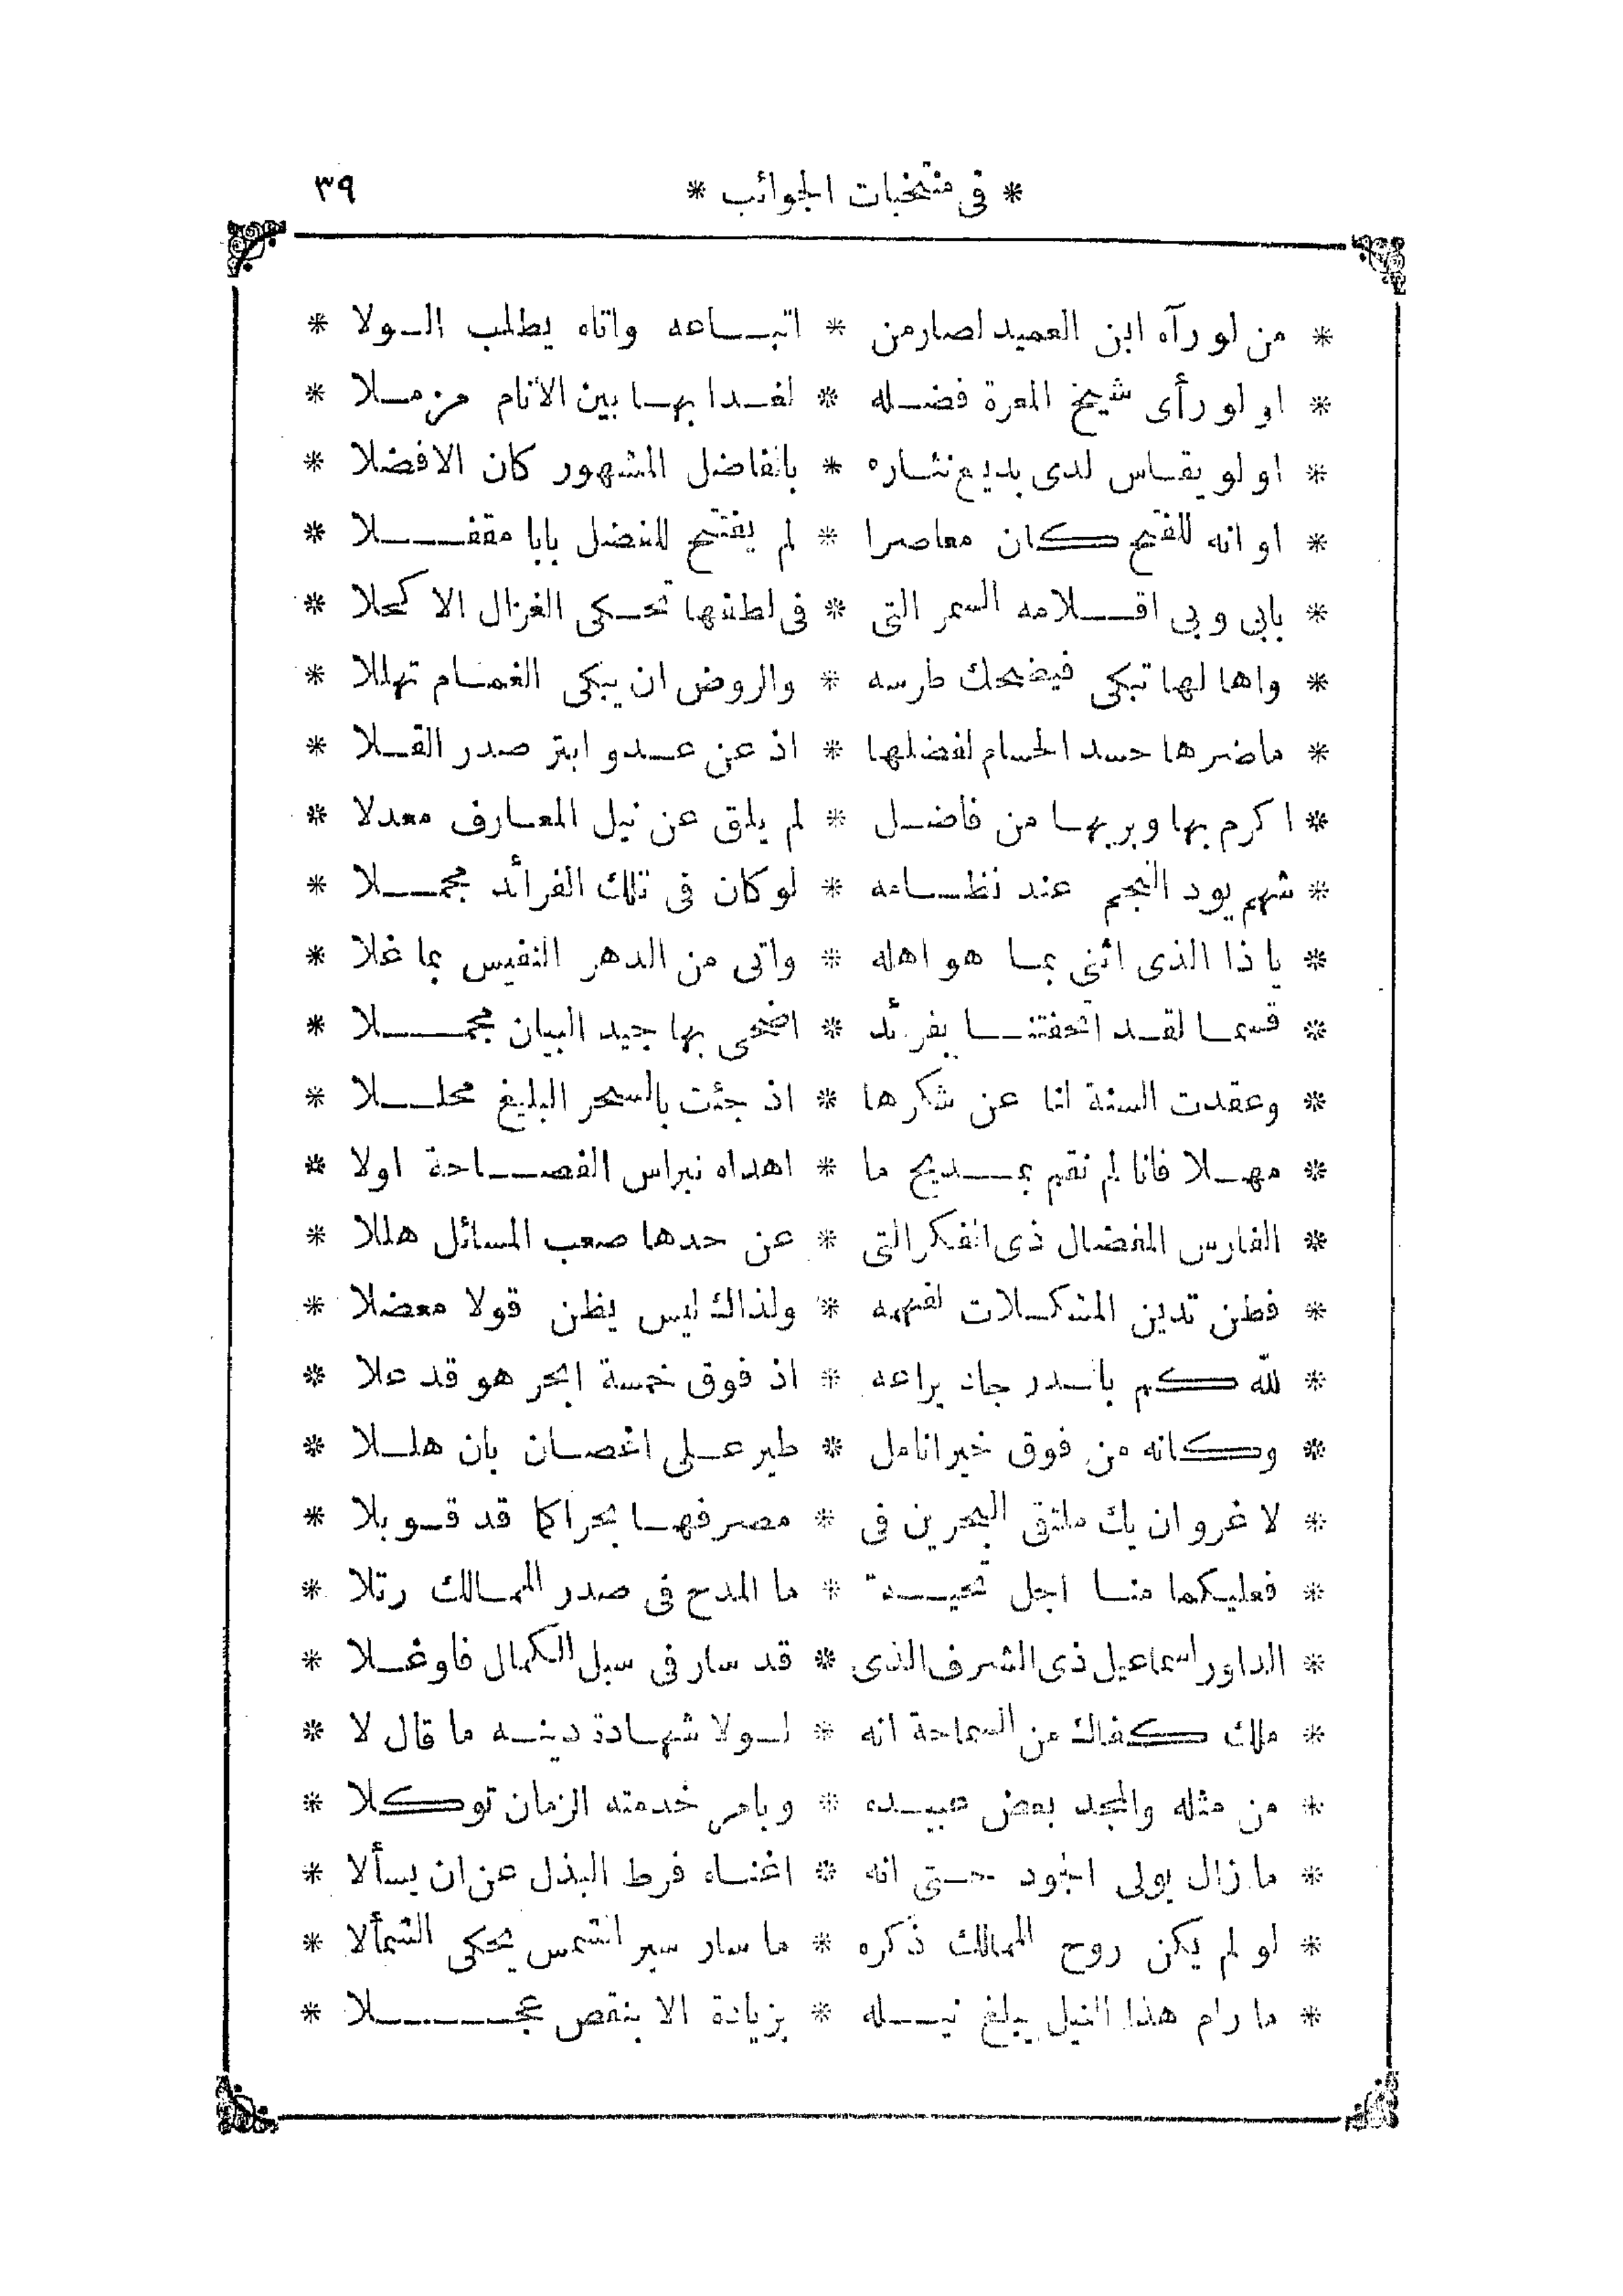 * فى منتخبات الجوائب * ٣٩
* من لو رآه ابن العميد لصار من * اتبـاعه واتاه يطلب الـولا *
* او لو رأى شيخ المعرة فضـله * لغـدا بهـا بين الانام مزمـلا *
* او لو يقـاس لدى بديع نثـاره * بالفاضل المشهور كان الافضلا *
* او انه للفتح كان معاصرا * لم يفتح للفضل بابا مقفـلا *
* بابى وبى اقـلامه السمر التى * فى لطفها تحـكى الغزال الاكحلا *
* واها لها تبكى فيضحك طرسه * والروض ان يبكى الغمـام تهللا *
* ماضرها حسد الحسام لفضلها * اذ عن عـدو ابتز صدر القـلا *
* اكرم بها وبربهـا من فاضـل * لم يلق عن نيل المعـارف معدلا *
* شهم يود النجم عند نظـامه * لو كان فى تلك الفرائد مجمـلا *
* يا ذا الذى اثنى بمـا هو اهله * واتى من الدهر النفيس بما غلا *
* قسمـا لقـد اتحفتنـا بفرئد * اضحى بها جيد البيان مجمـلا *
* وعقدت السنة لنا عن شكرها * اذ جئت بالسحر البليغ محلـلا *
* مهـلا فانا لم نقم بمـديح ما * اهداه نبراس الفصـاحة اولا *
* الفارس المفضال ذى الفكر التى * عن حدها صعب المسائل هللا *
* فطن تدين المشكـلات لفهمه * ولذاك ليس يظن قولا معضلا *
* لله كم بالـدر جاد يراعه * اذ فوق خمسة ابحر هو قد علا *
* وكانه من فوق خير انامل * طير عـلى اغصـان بان هلـلا *
* لا غرو ان يك ملتقى البحرين فى * مصر فهـا بحرا كما قد قـوبلا *
* فعليكما منـا اجل تحيـة * ما المدح فى صدر الممـالك رتلا *
* الداور اسماعيل ذى الشرف الذى * قد سار فى سبل الكمال فاوغـلا *
* ملك كفاك من السماحة انه * لـولا شهـادة دينـه ما قال لا *
* من مثله والمجد بعض عبيـده * وبامر خدمته الزمان توكلا *
* ما زال يولى الجود حـتى انه * اغنـاه فرط البذل عن ان يسألا *
* لو لم يكن روح الممالك ذكره * ما سار سير الشمس يحكى الشمألا *
* ما رام هذا النيل يبلغ نيـله * بزيادة الا بنقص عجـلا *